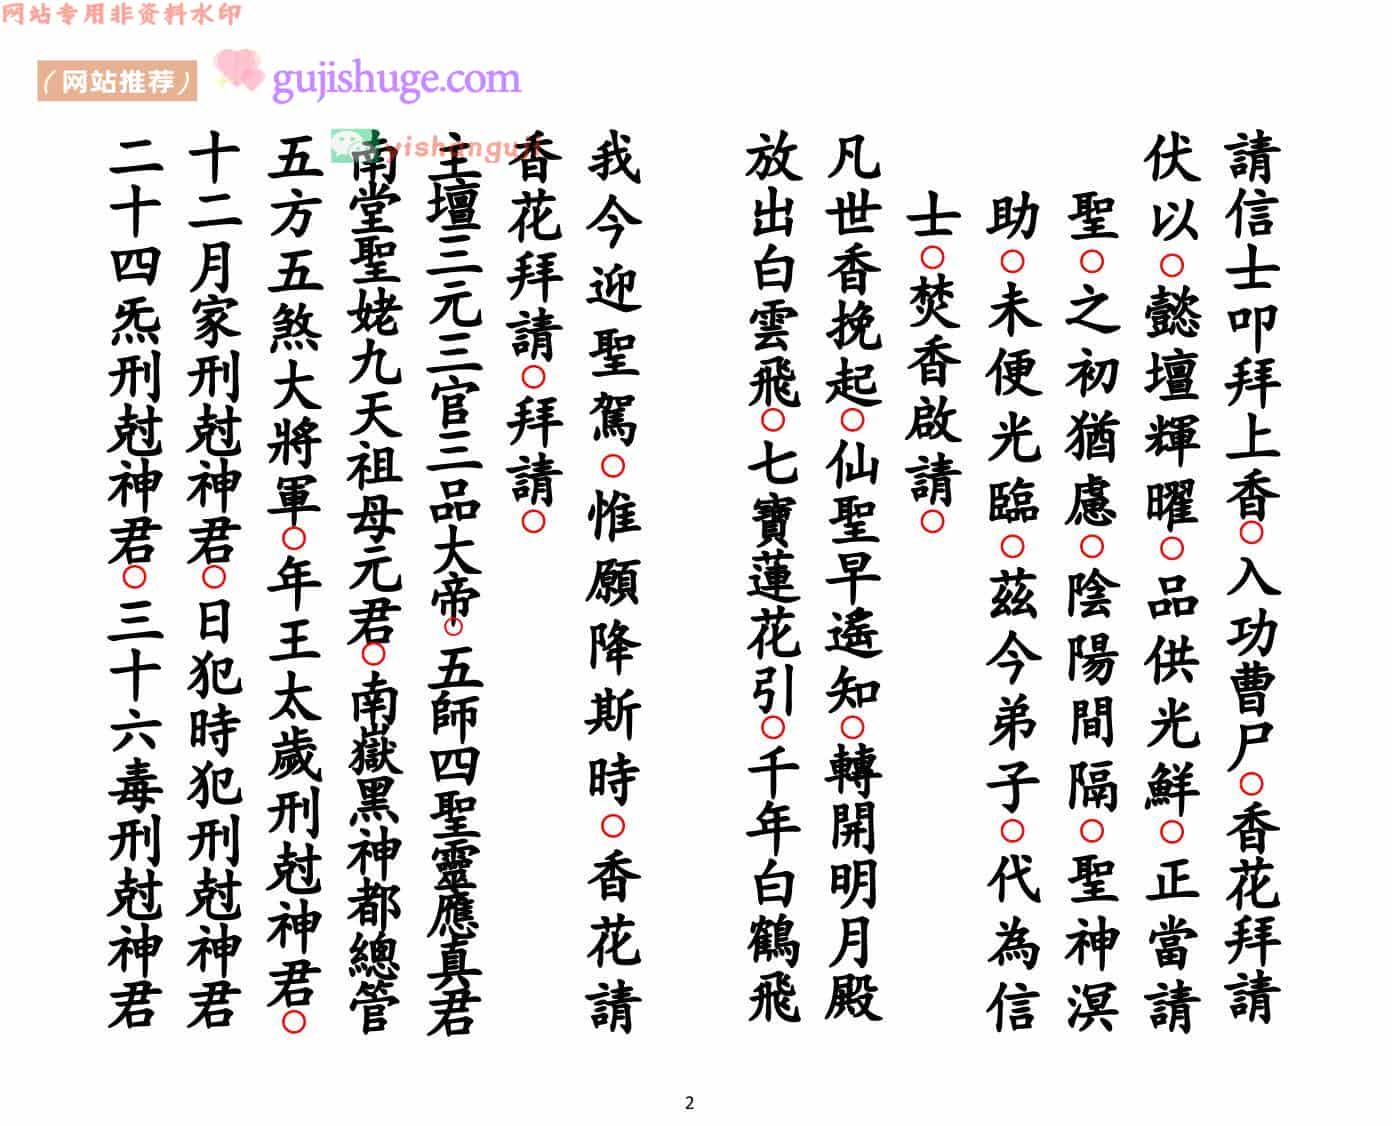 网站专用非资料水印
（网站推荐）
gujishuge.com
yishanguji
請信士叩拜上香○入功曹尸○香花拜請
伏以○懿壇輝曜○品供光鮮○正當請
聖○之初猶慮○陰陽間隔○聖神溟
助○未便光臨○茲今弟子○代為信
士○焚香啟請○
凡世香挽起○仙聖早遙知○轉開明月殿
放出白雲飛○七寶蓮花引○千年白鶴飛
我今迎聖駕○惟願降斯時○香花請
香花拜請○拜請○
主壇三元三官三品大帝○五師四聖靈應真君
南堂聖姥九天祖母元君○南嶽黑神都總管
五方五煞大將軍○年王太歲刑尅神君○
十二月家刑尅神君○日犯時犯刑尅神君
二十四炁刑尅神君○三十六毒刑尅神君
2